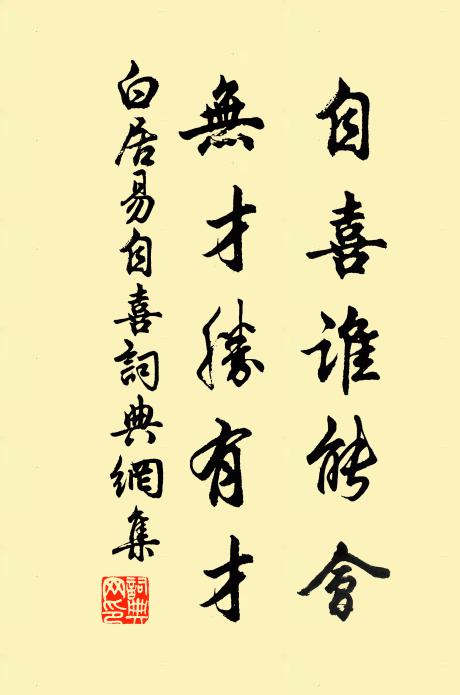 自喜誰能會
無才勝有才
白居易自喜詞典網集
詞典網印